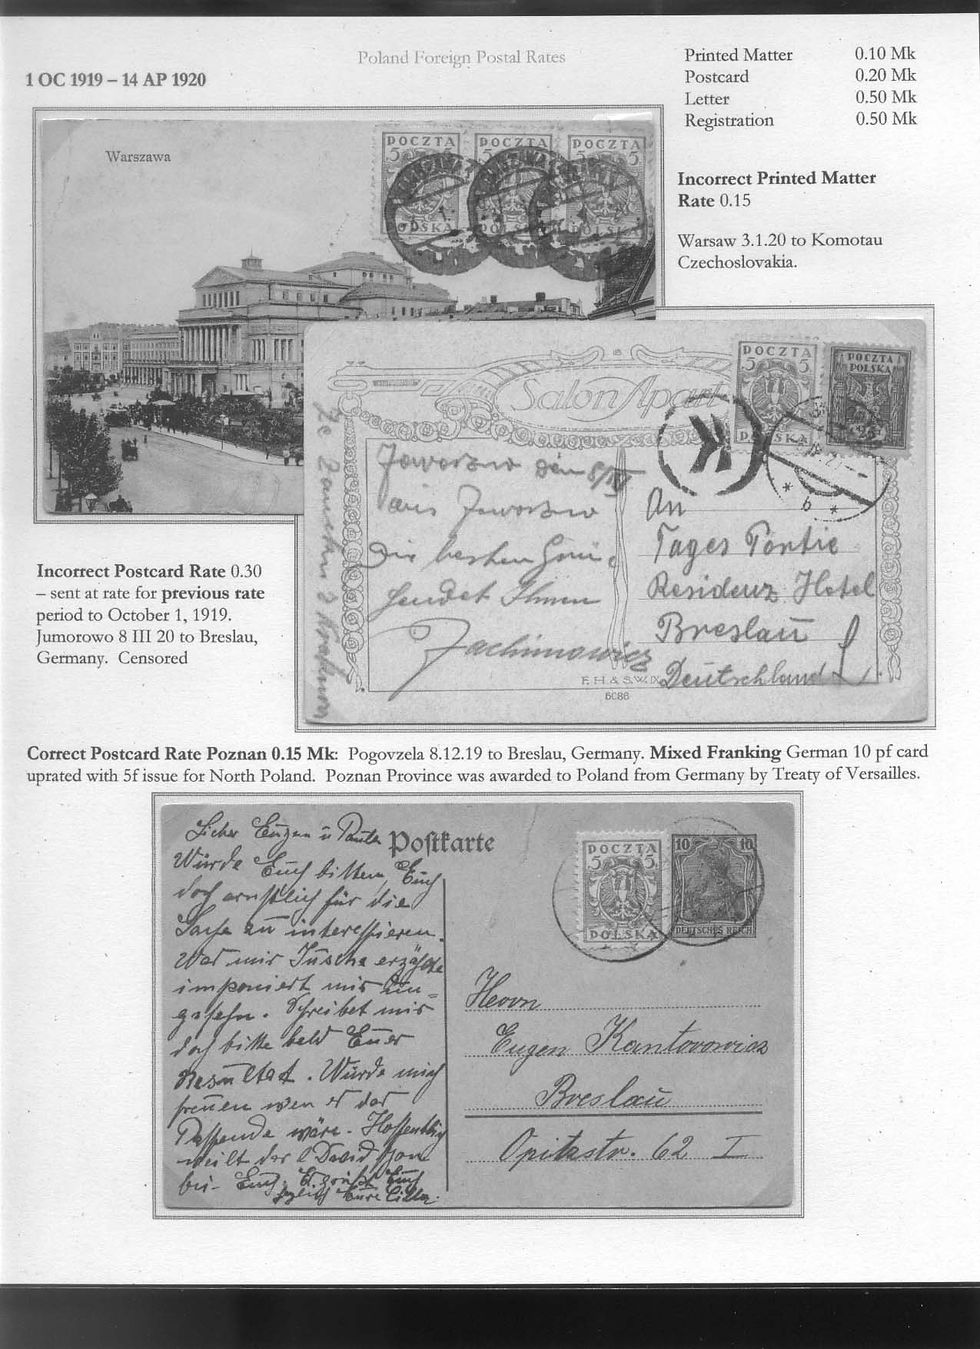 Poland Foreign Postal Rates
1 OC 1919 – 14 AP 1920
Printed Matter 0.10 Mk
Postcard 0.20 Mk
Letter 0.50 Mk
Registration 0.50 Mk
Incorrect Printed Matter
Rate 0.15
Warsaw 3.1.20 to Komotau
Czechoslovakia.
Warszawa
POCZTA POCZTA POCZTA
5 5 5
Incorrect Postcard Rate 0.30
– sent at rate for previous rate
period to October 1, 1919.
Jumorowo 8 III 20 to Breslau,
Germany. Censored
Salon Apart
POCZTA
5 5
POLSKA
POCZTA
POLSKA
25
* b *
Jaworzno den 8/III
aus Jaworzno
Die besten
sendet Ihnen
An
Tages Portie
Residenz Hotel
Breslau
Deutschland
F. H. & S. W. IX
6086
Correct Postcard Rate Poznan 0.15 Mk: Pogovzela 8.12.19 to Breslau, Germany. Mixed Franking German 10 pf card
uprated with 5f issue for North Poland. Poznan Province was awarded to Poland from Germany by Treaty of Versailles.
Postkarte
POCZTA
5 5
POLSKA
10 10
DEUTSCHES REICH
Lieber Eugen u Paula
Würde Euch bitten, Euch
doch ernstlich für die
Sache zu interessieren.
Was mir Tuscha erzählte
imponiert mir
Schreibet mir
doch bitte bald Euer
Resultat. Würde mich
freuen wen er das
Passende wäre. Hoffentlich
weilt der David schon
bei Euch.
Herrn
Eugen Kantorowicz
Breslau
Opitzstr. 62 I